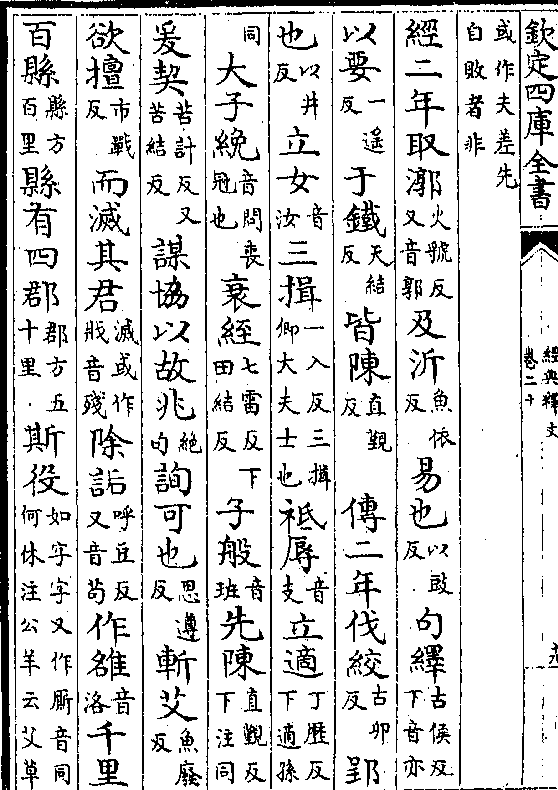 欽定四庫全書
經典釋文
卷二十
或作夫差先自敗者非
經二年取漷火虢反又音郭及沂魚依反易也以豉反句繹古侯反下音亦
以要一遥反于鐵天結反皆陳直覲反傳二年伐絞古卯反郢
也以井反立女音汝三揖一入反三揖卿大夫士也祗辱音支立適丁歷反下適孫
同大子絻音問喪冠也衰絰七雷反下田結反子般音班先陳直覲反下注同
爰契苦計反又苦結反謀協以故兆絶句詢可也思遵反斬艾魚廢反
欲擅市戰反而滅其君滅或作戕音殘除詬呼豆反又音苟作雒音洛千里
百縣縣方百里縣有四郡郡方五十里斯役如字字又作厮音同何休注公羊云艾草